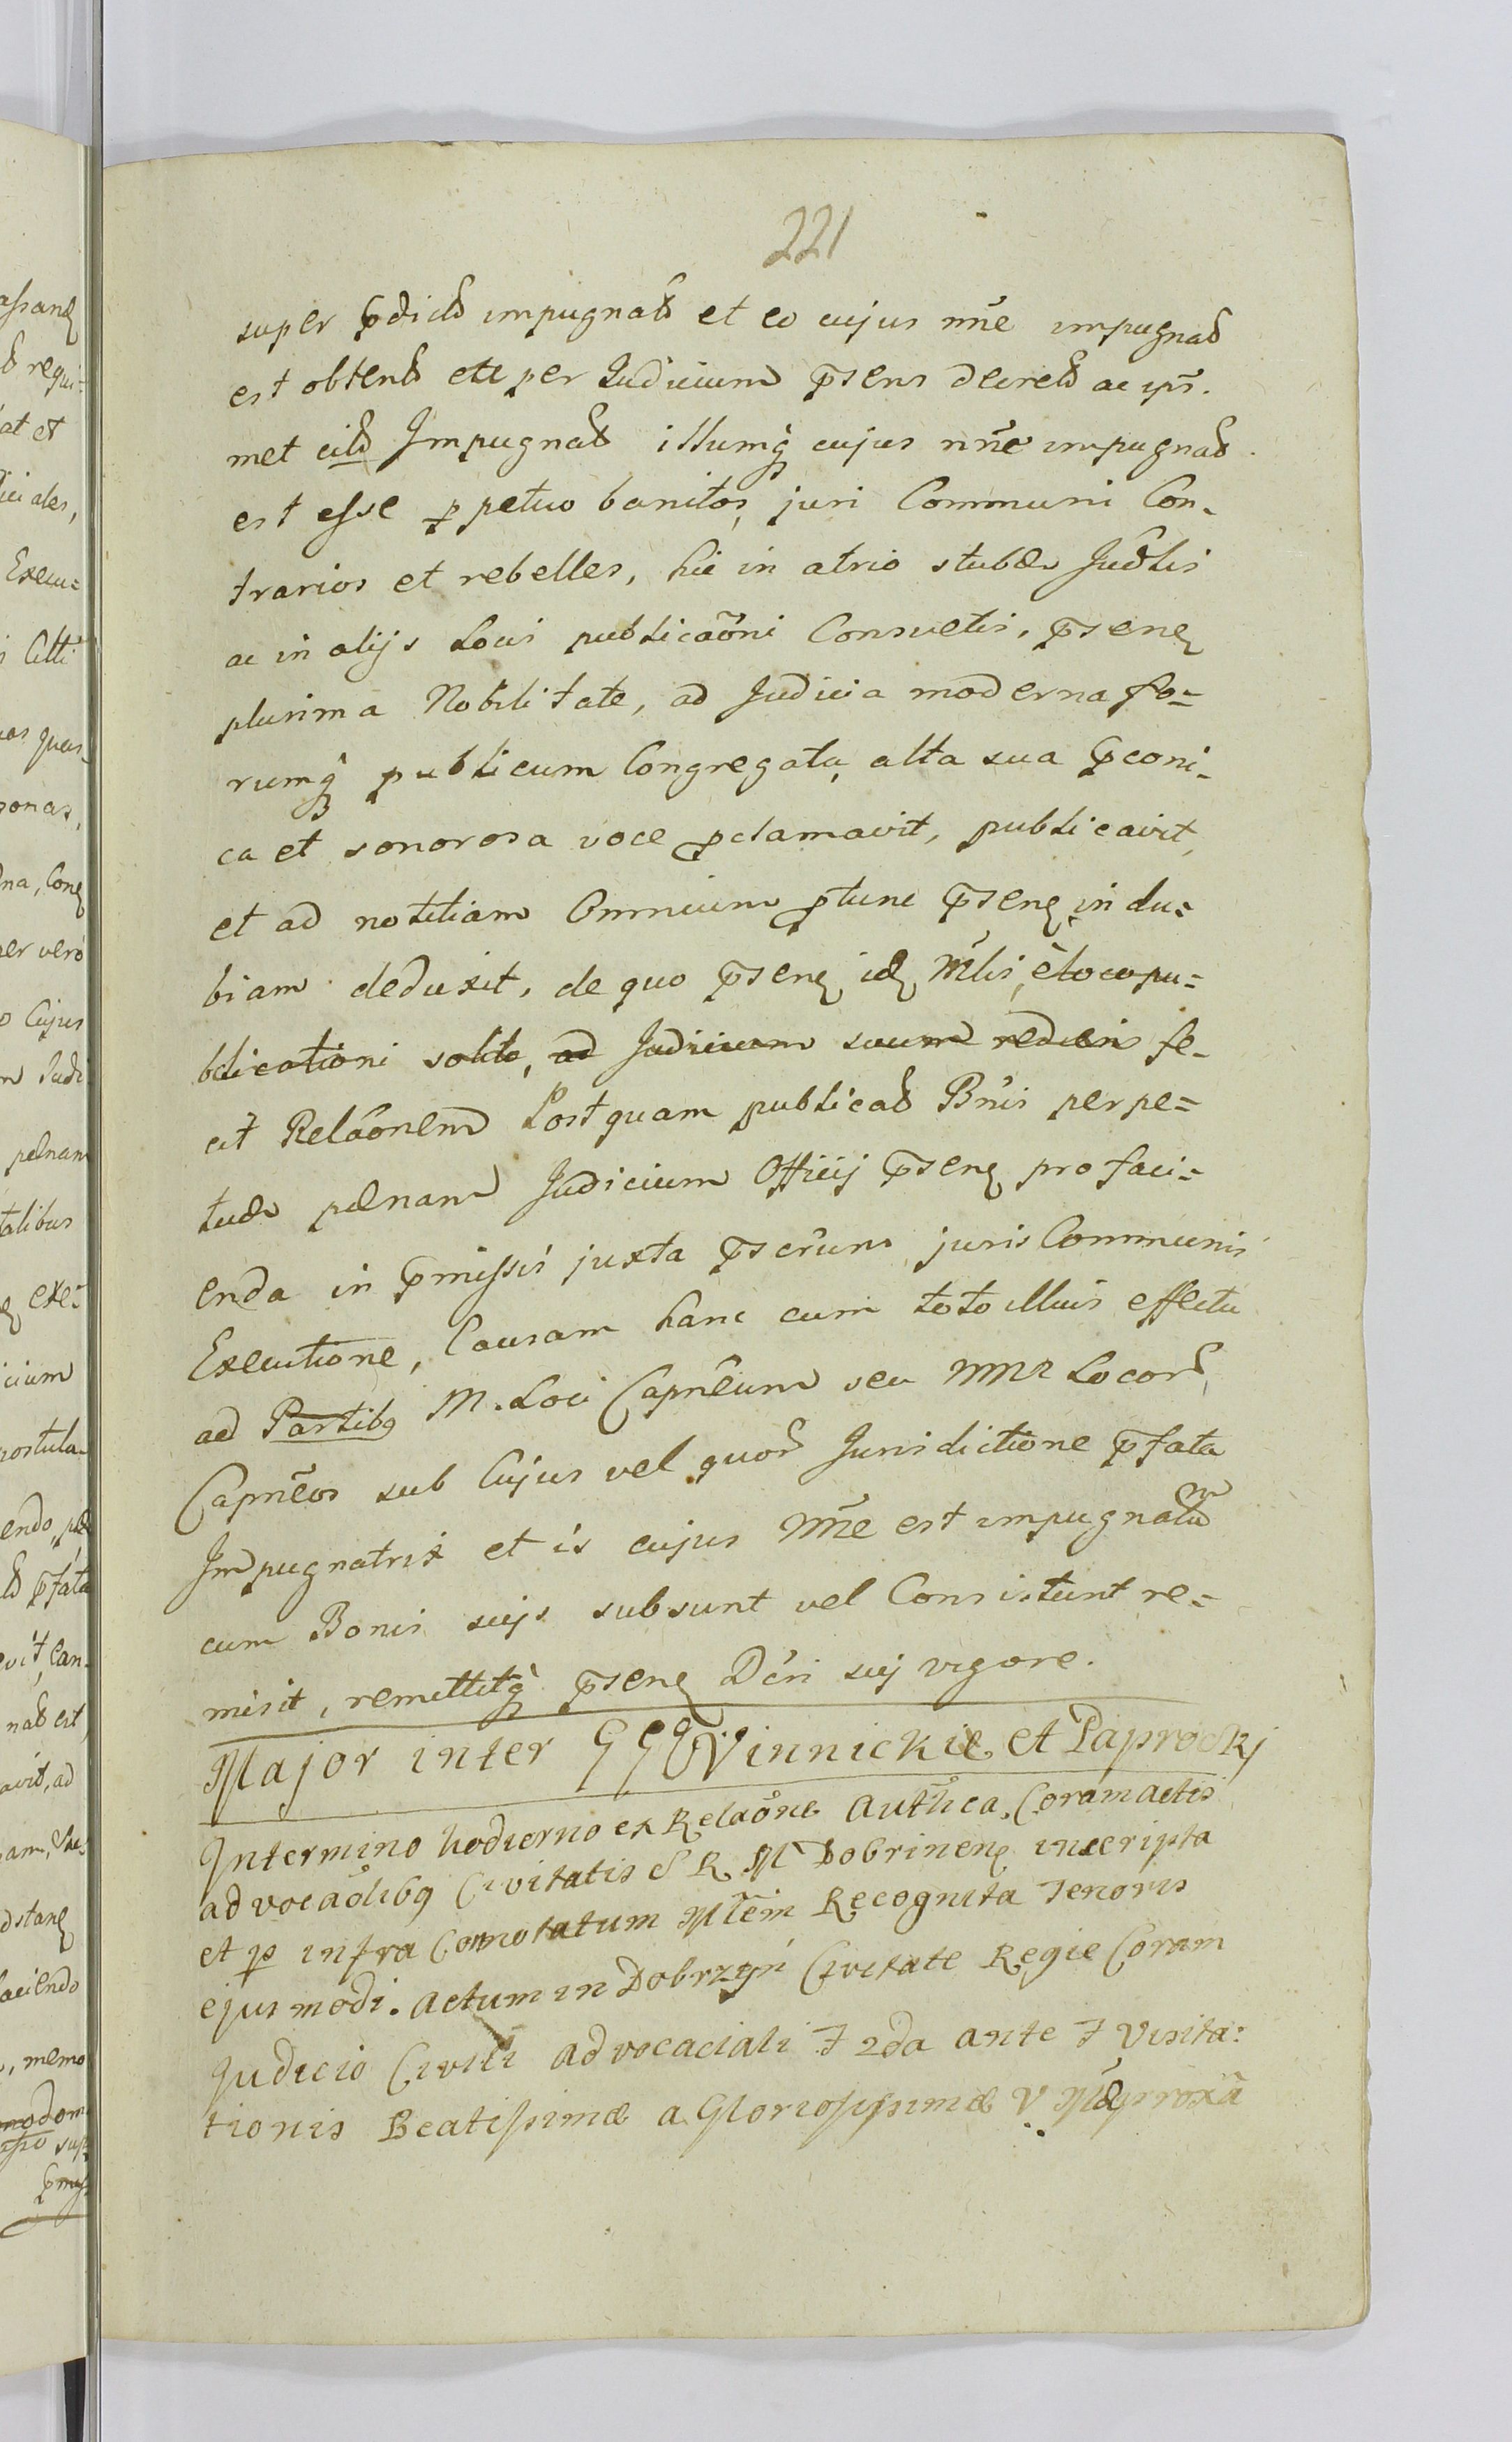 221
super p̄dictū impugnatū et eo cujus nn̄e impugnatū
est obtentū etc per Judicium p̄sens decretū ac ips̄.
met citū Impugnatū illumq̄ cujus nn̄e impugnatū
est esse ꝑpetuo banitos, juri Communi Con-
trarios et rebelles, hic in atrio stubæ Judlis
ac in alijs Locis publicaōni Consuetis, p̄senꝭ
plurima Nobilitate, ad Judicia moderna fo-
rumq̄ publicum Congregata, alta sua p̄coni-
ca et sonorosa voce ꝓclamavit, publicavit,
et ad notitiam Omnium ꝓtunc p̄senꝭ indu-
biam deduxit, de quo p̄senꝭ idꝭ Mlis, è loco pu-
blicationi solito, ad Judicium suum rediens fe-
cit Relāonem Postquam publicatū Bn̄is perpe-
tuæ pœnam Judicium Officij p̄senꝭ pro faci-
enda in p̄missis juxta p̄scrum juris Communis
Executione, Causam hanc cum toto illius effectu
ad Partibꝰ M. Loci Capnēum seu MMR Locorū
Capnēos sub Cujus vel quorū Jurisdictione p̄fata
Impugnatrix et is cujus nn̄e est impugnatum
cum Bonis suis subsunt vel Consistunt re-
misit, remittitq̄ p̄senꝭ Dcri sui vigore.
Major inter GG Winnickie et Paprockj
In termino hodierno ex Relaōne Auth̄ca Coram actis
advocaālibꝰ Civitatis S R M Dobrinenꝭ inscripta
et ꝑ infra Connotatum Mlēm Recognita Tenoris
ejusmodi. Actum in Dobrzyń Civitate Regie Coram
Judicio Civili advocaciali F 2da ante F Visita-
tionis Beatissimæ a Gloriosissimæ V Mæ proxā